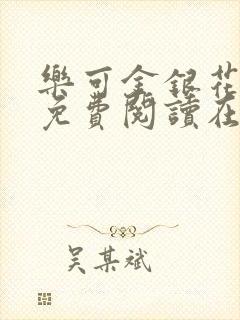 樂可金銀花
免費閱讀在
吴某斌